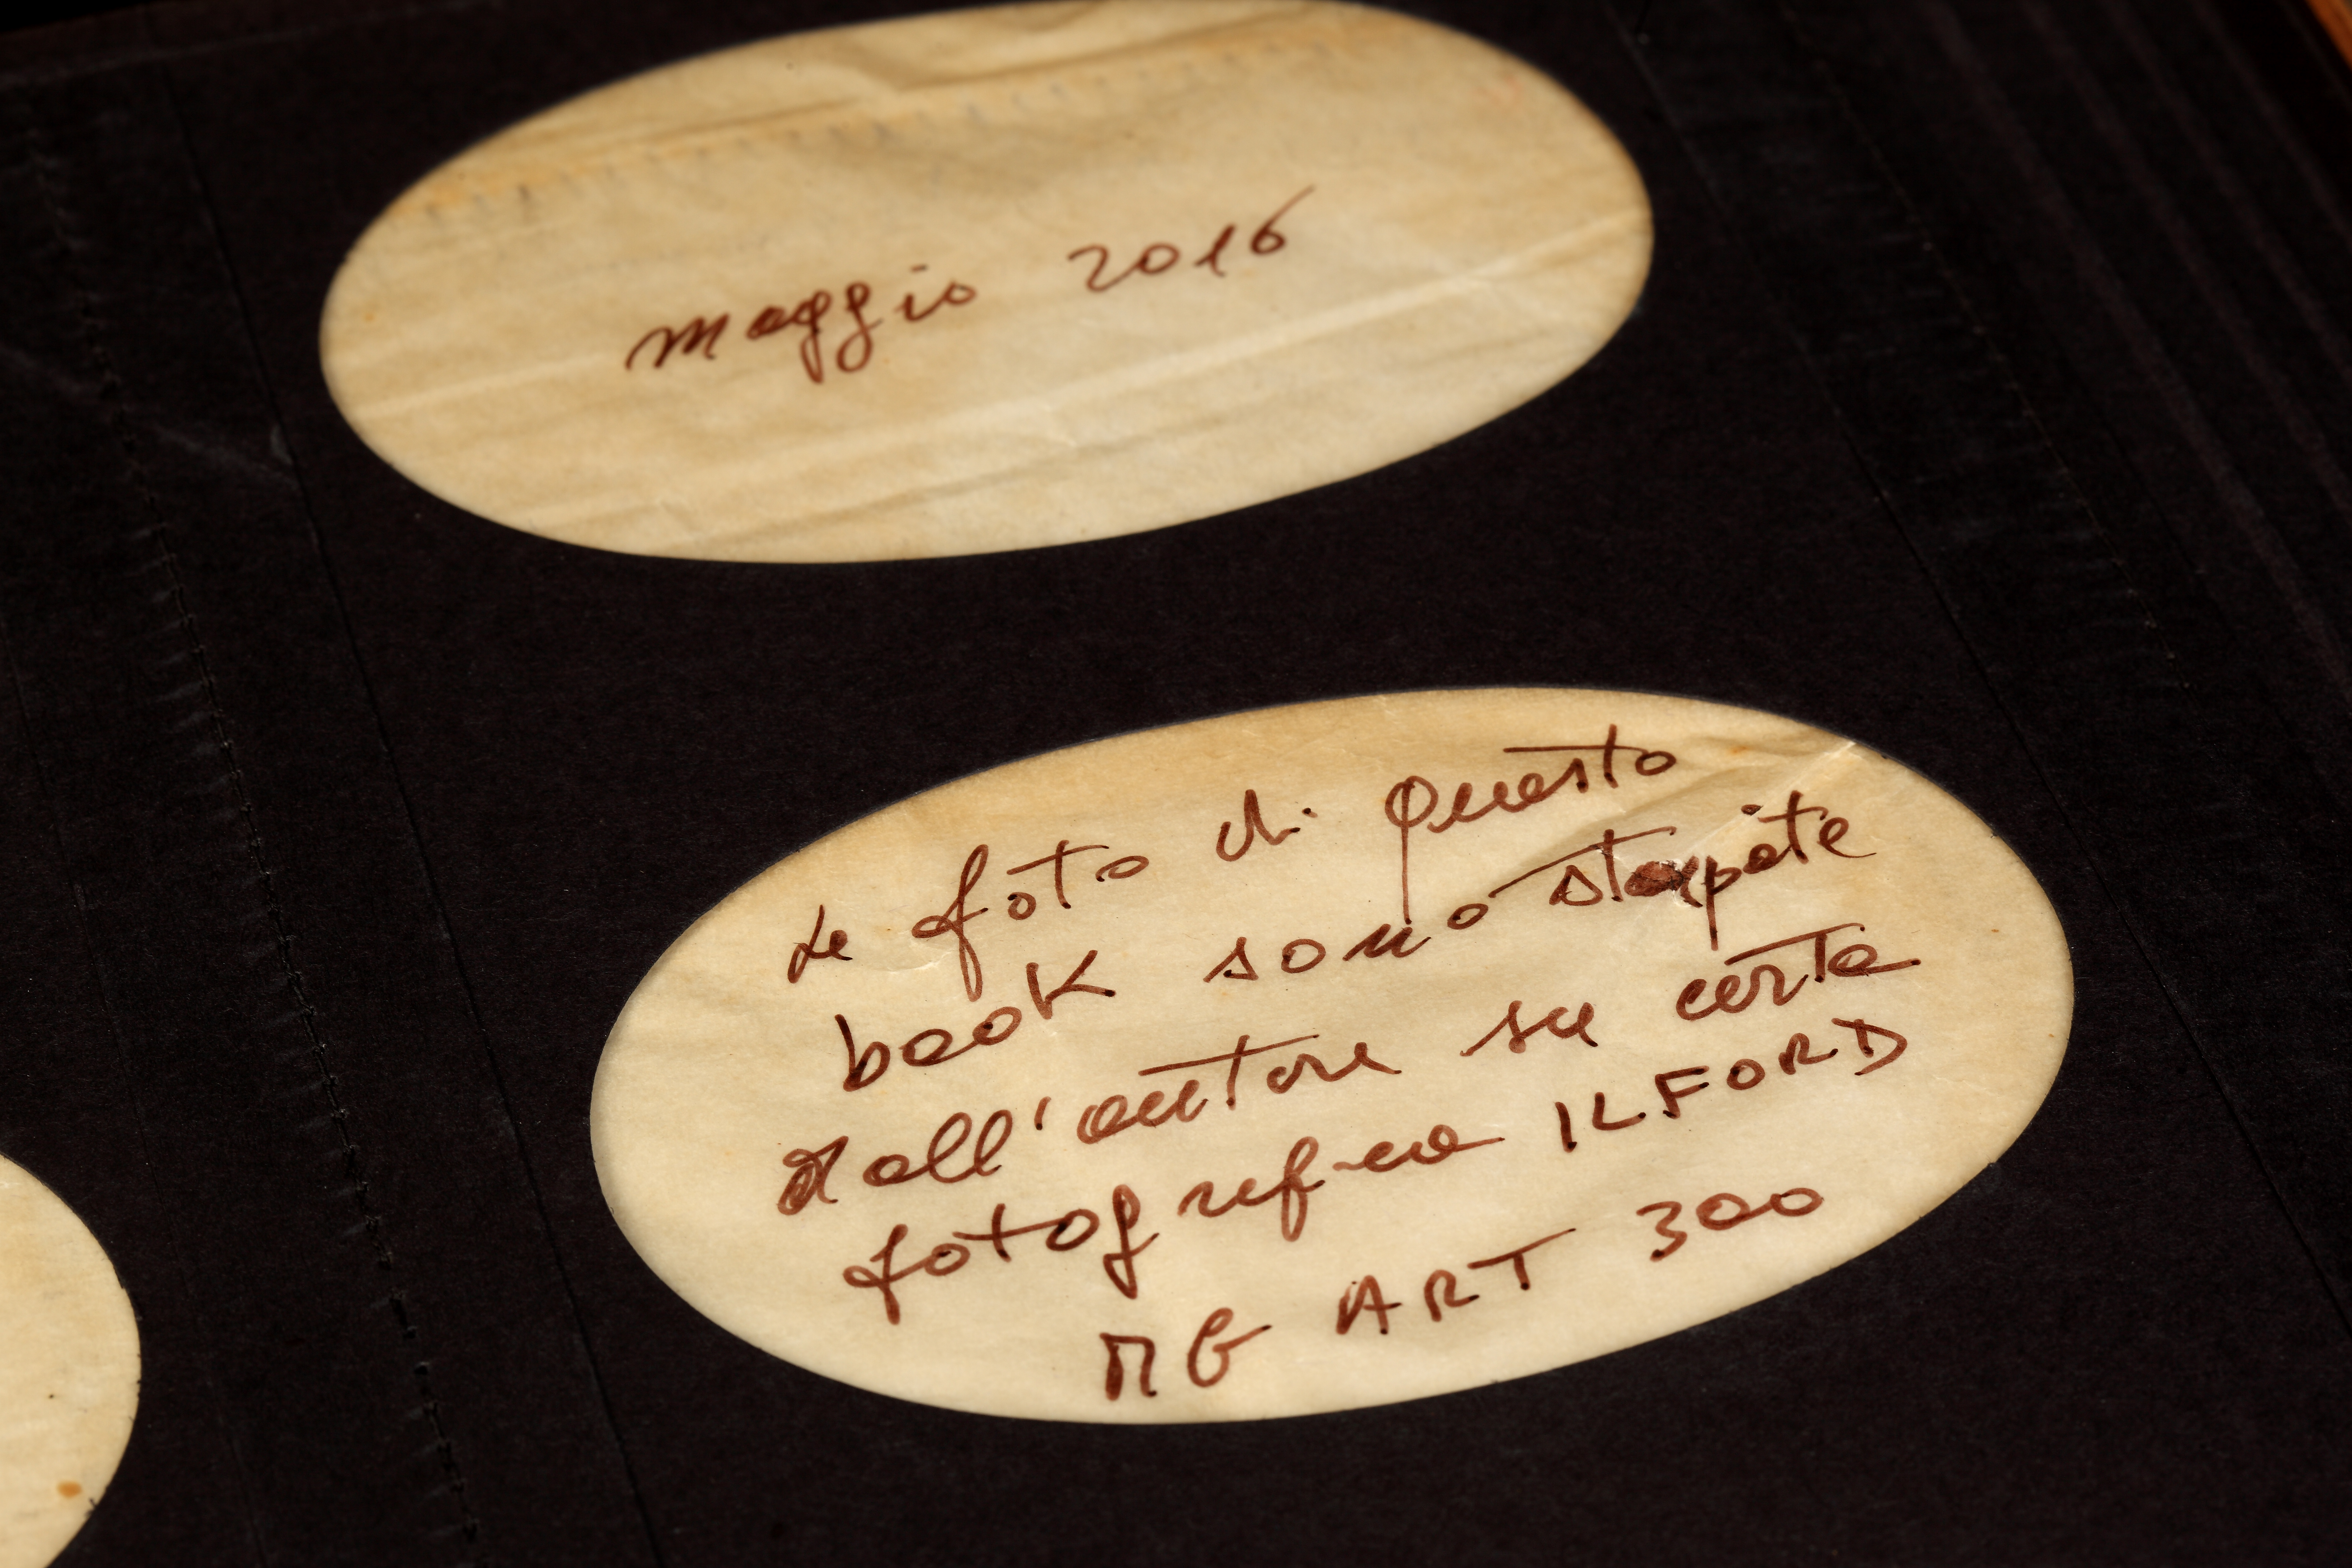 maggio 2016
Le foto di questo
book sono stampate
dall'autore su carta
fotografica ILFORD
MG ART 300